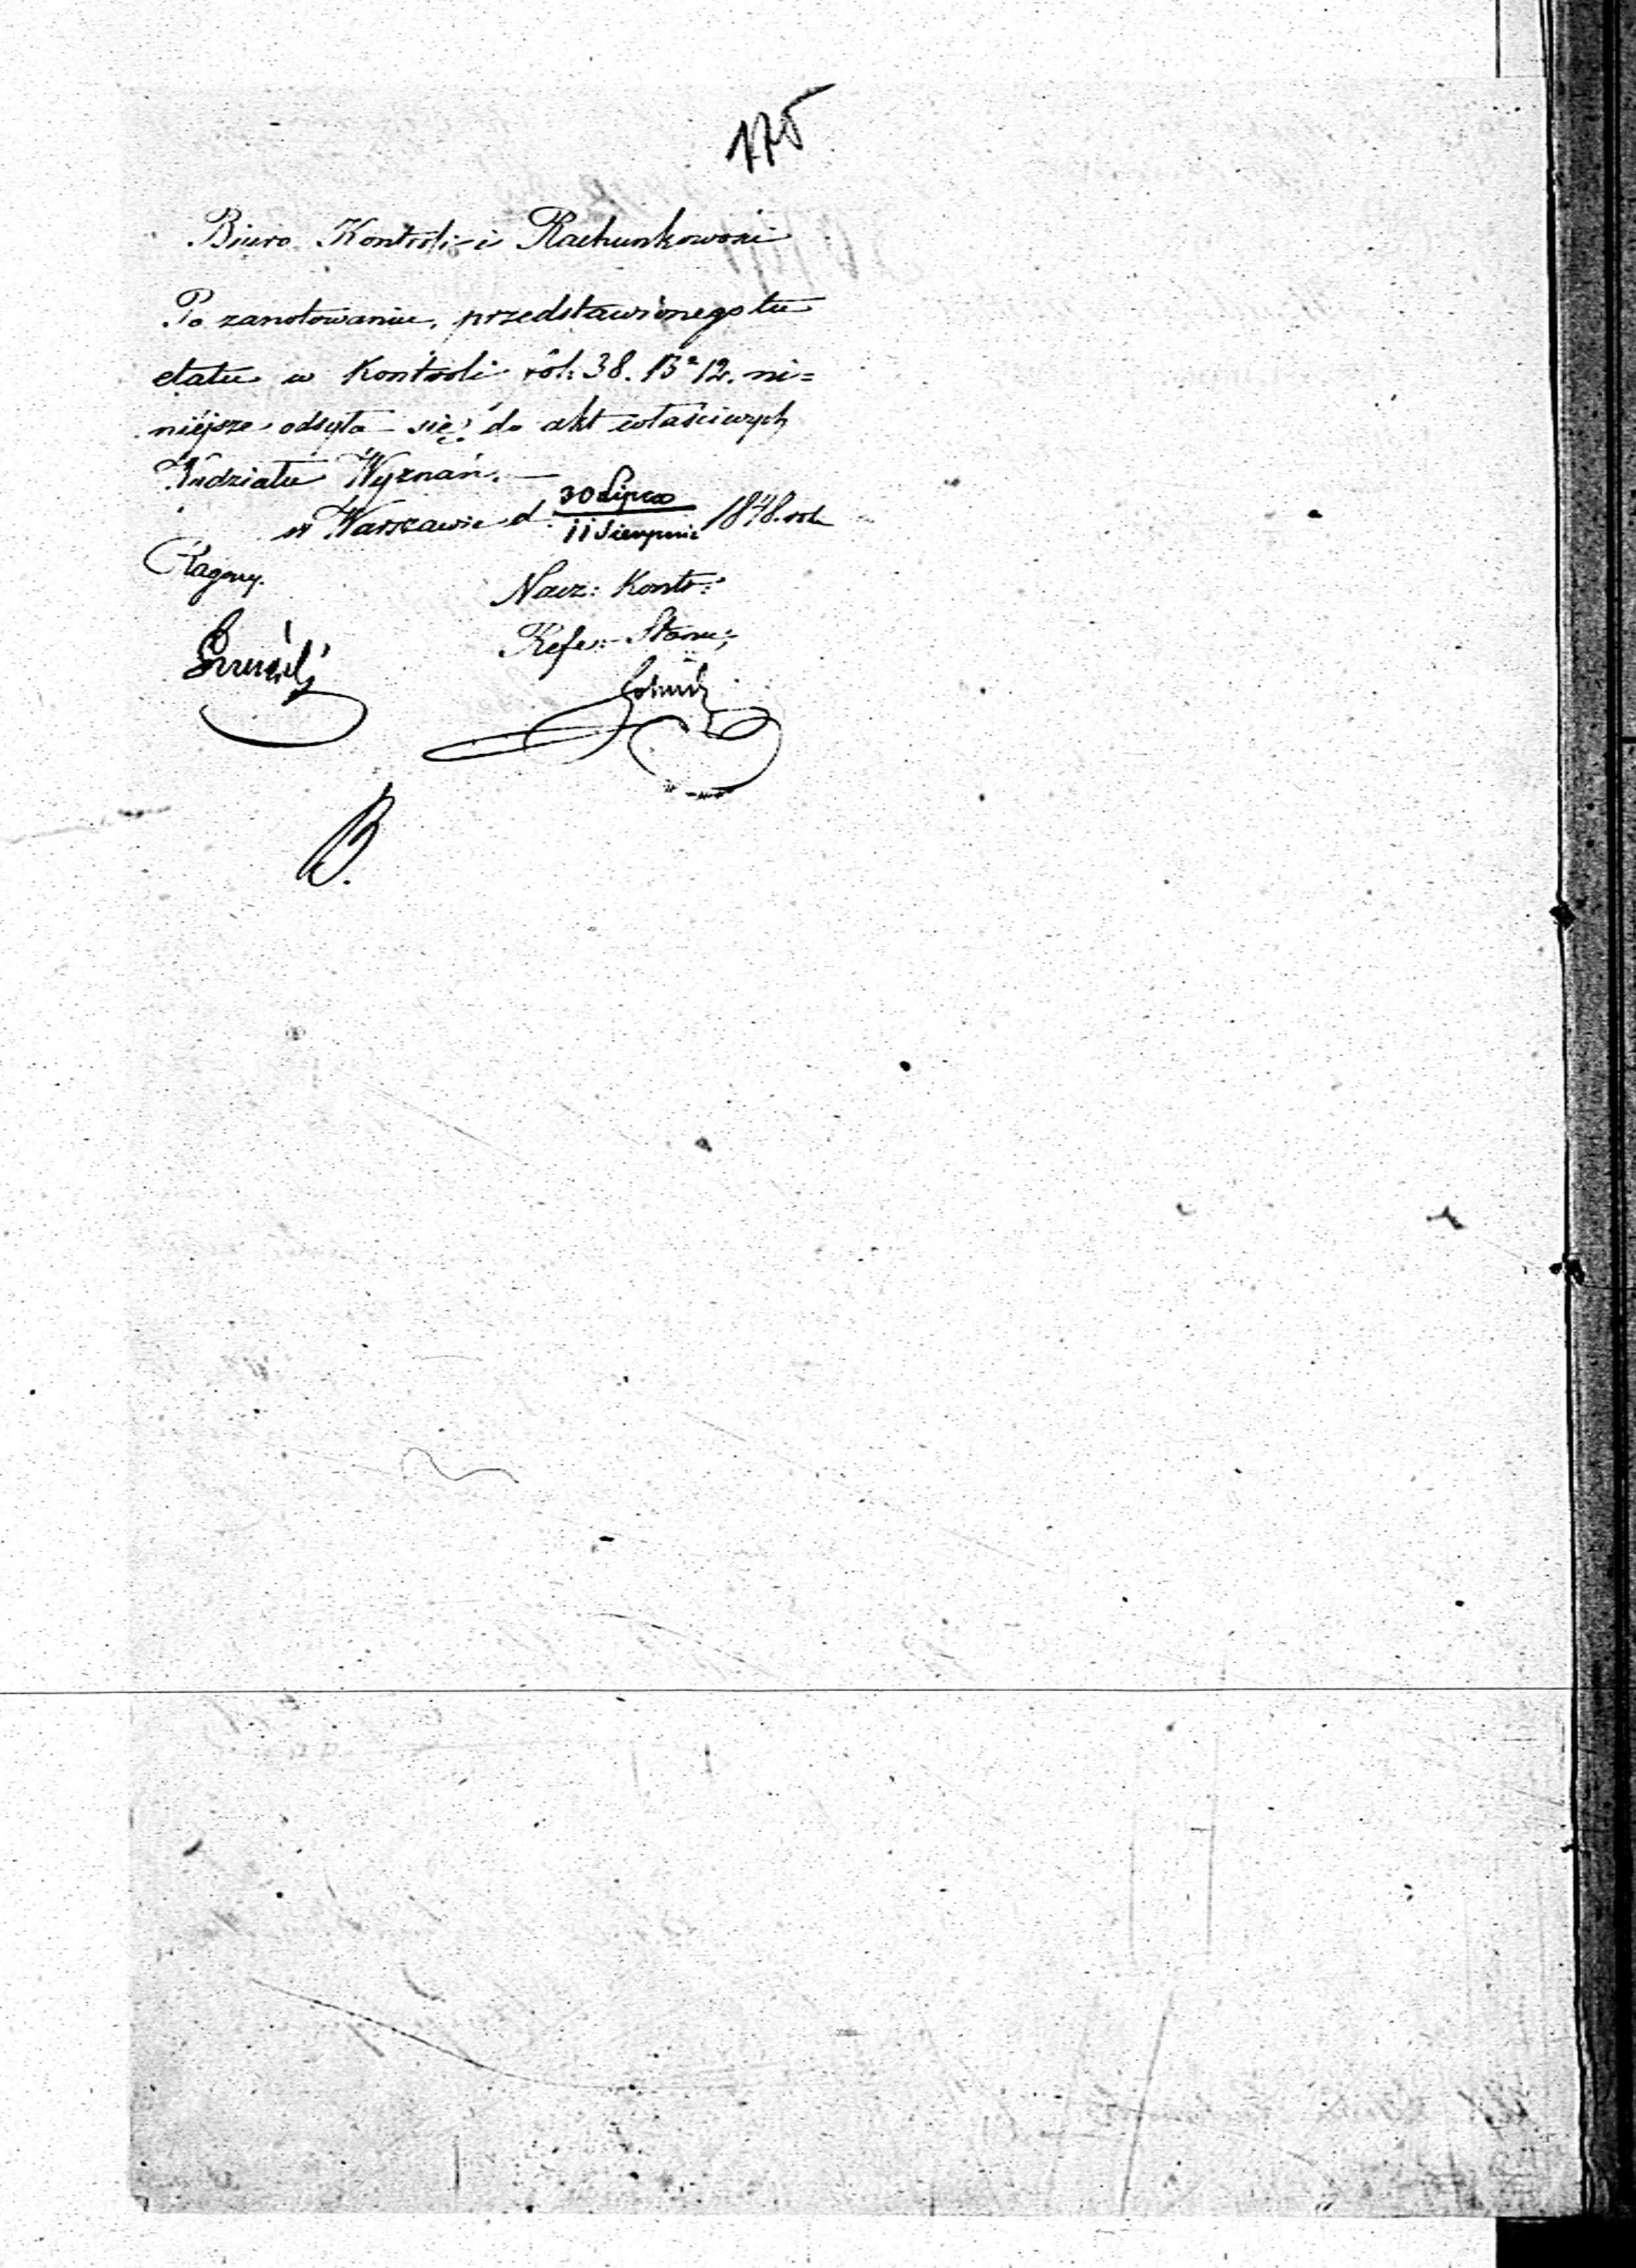 175
Biuro Kontroli i Rachunkowości
Po zanotowaniu, przedstawionego tu
etatu w Kontroli vol: 38. B² 12. ni=
niejsze odsyła się do akt właściwych
Wydziału Wyznań. —
w Warszawie d. 30 Lipca / 11 Sierpnia 1848. roku
Nacz: Kontr:
Refer: Stanu;